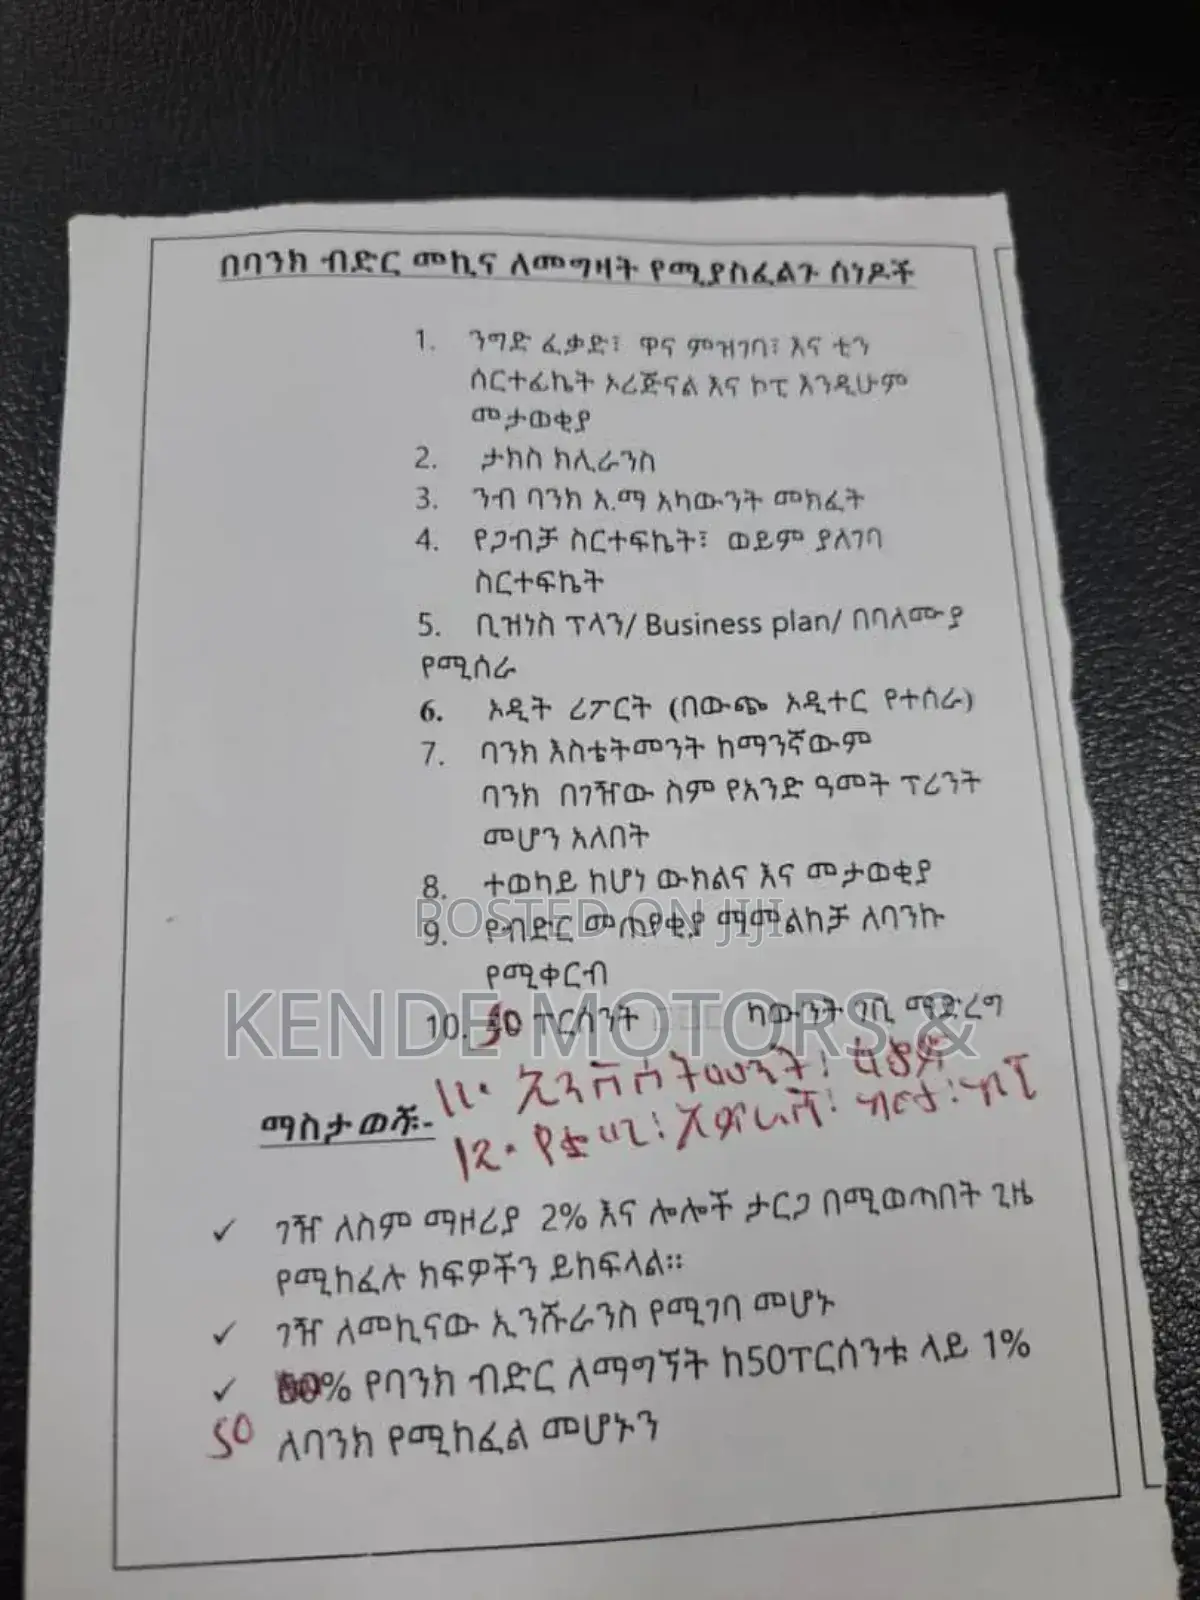 በባንክ ብድር መኪና ለመግዛት የሚያስፈልጉ ሰነዶች
1. ንግድ ፈቃድ፣ ዋና ምዝገባ፣ እና ቲን
ሰርተፊኬት ኦሪጅናል እና ኮፒ እንዲሁም
መታወቂያ
2. ታክስ ክሊራንስ
3. ንብ ባንክ አ.ማ አካውንት መክፈት
4. የጋብቻ ስርተፍኬት፣ ወይም ያላገባ
ስርተፍኬት
5. ቢዝነስ ፕላን/ Business plan/ በባለሙያ
የሚሰራ
6. ኦዲት ሪፖርት (በውጭ ኦዲተር የተሰራ)
7. ባንክ እስቴትመንት ከማንኛውም
ባንክ በገዥው ስም የአንድ ዓመት ፕሪንት
መሆን አለበት
8. ተወካይ ከሆነ ውክልና እና መታወቂያ
POSTED ON JIJI
9. የብድር መጠየቂያ ማመልከቻ ለባንኩ
የሚቀርብ
KENDE MOTORS &
10. 50 ፐርሰንት ካውንት ገቢ ማድረግ
11.
ማስታወሻ፦
12.
✓ ገዥ ለስም ማዘሪያ 2% እና ሎሎች ታርጋ በሚወጣበት ጊዜ
የሚከፈሉ ክፍዎችን ይከፍላል።
✓ ገዥ ለመኪናው ኢንሹራንስ የሚገባ መሆኑ
✓ % የባንክ ብድር ለማግኘት ከ50ፐርሰንቱ ላይ 1%
50 ለባንክ የሚከፈል መሆኑን